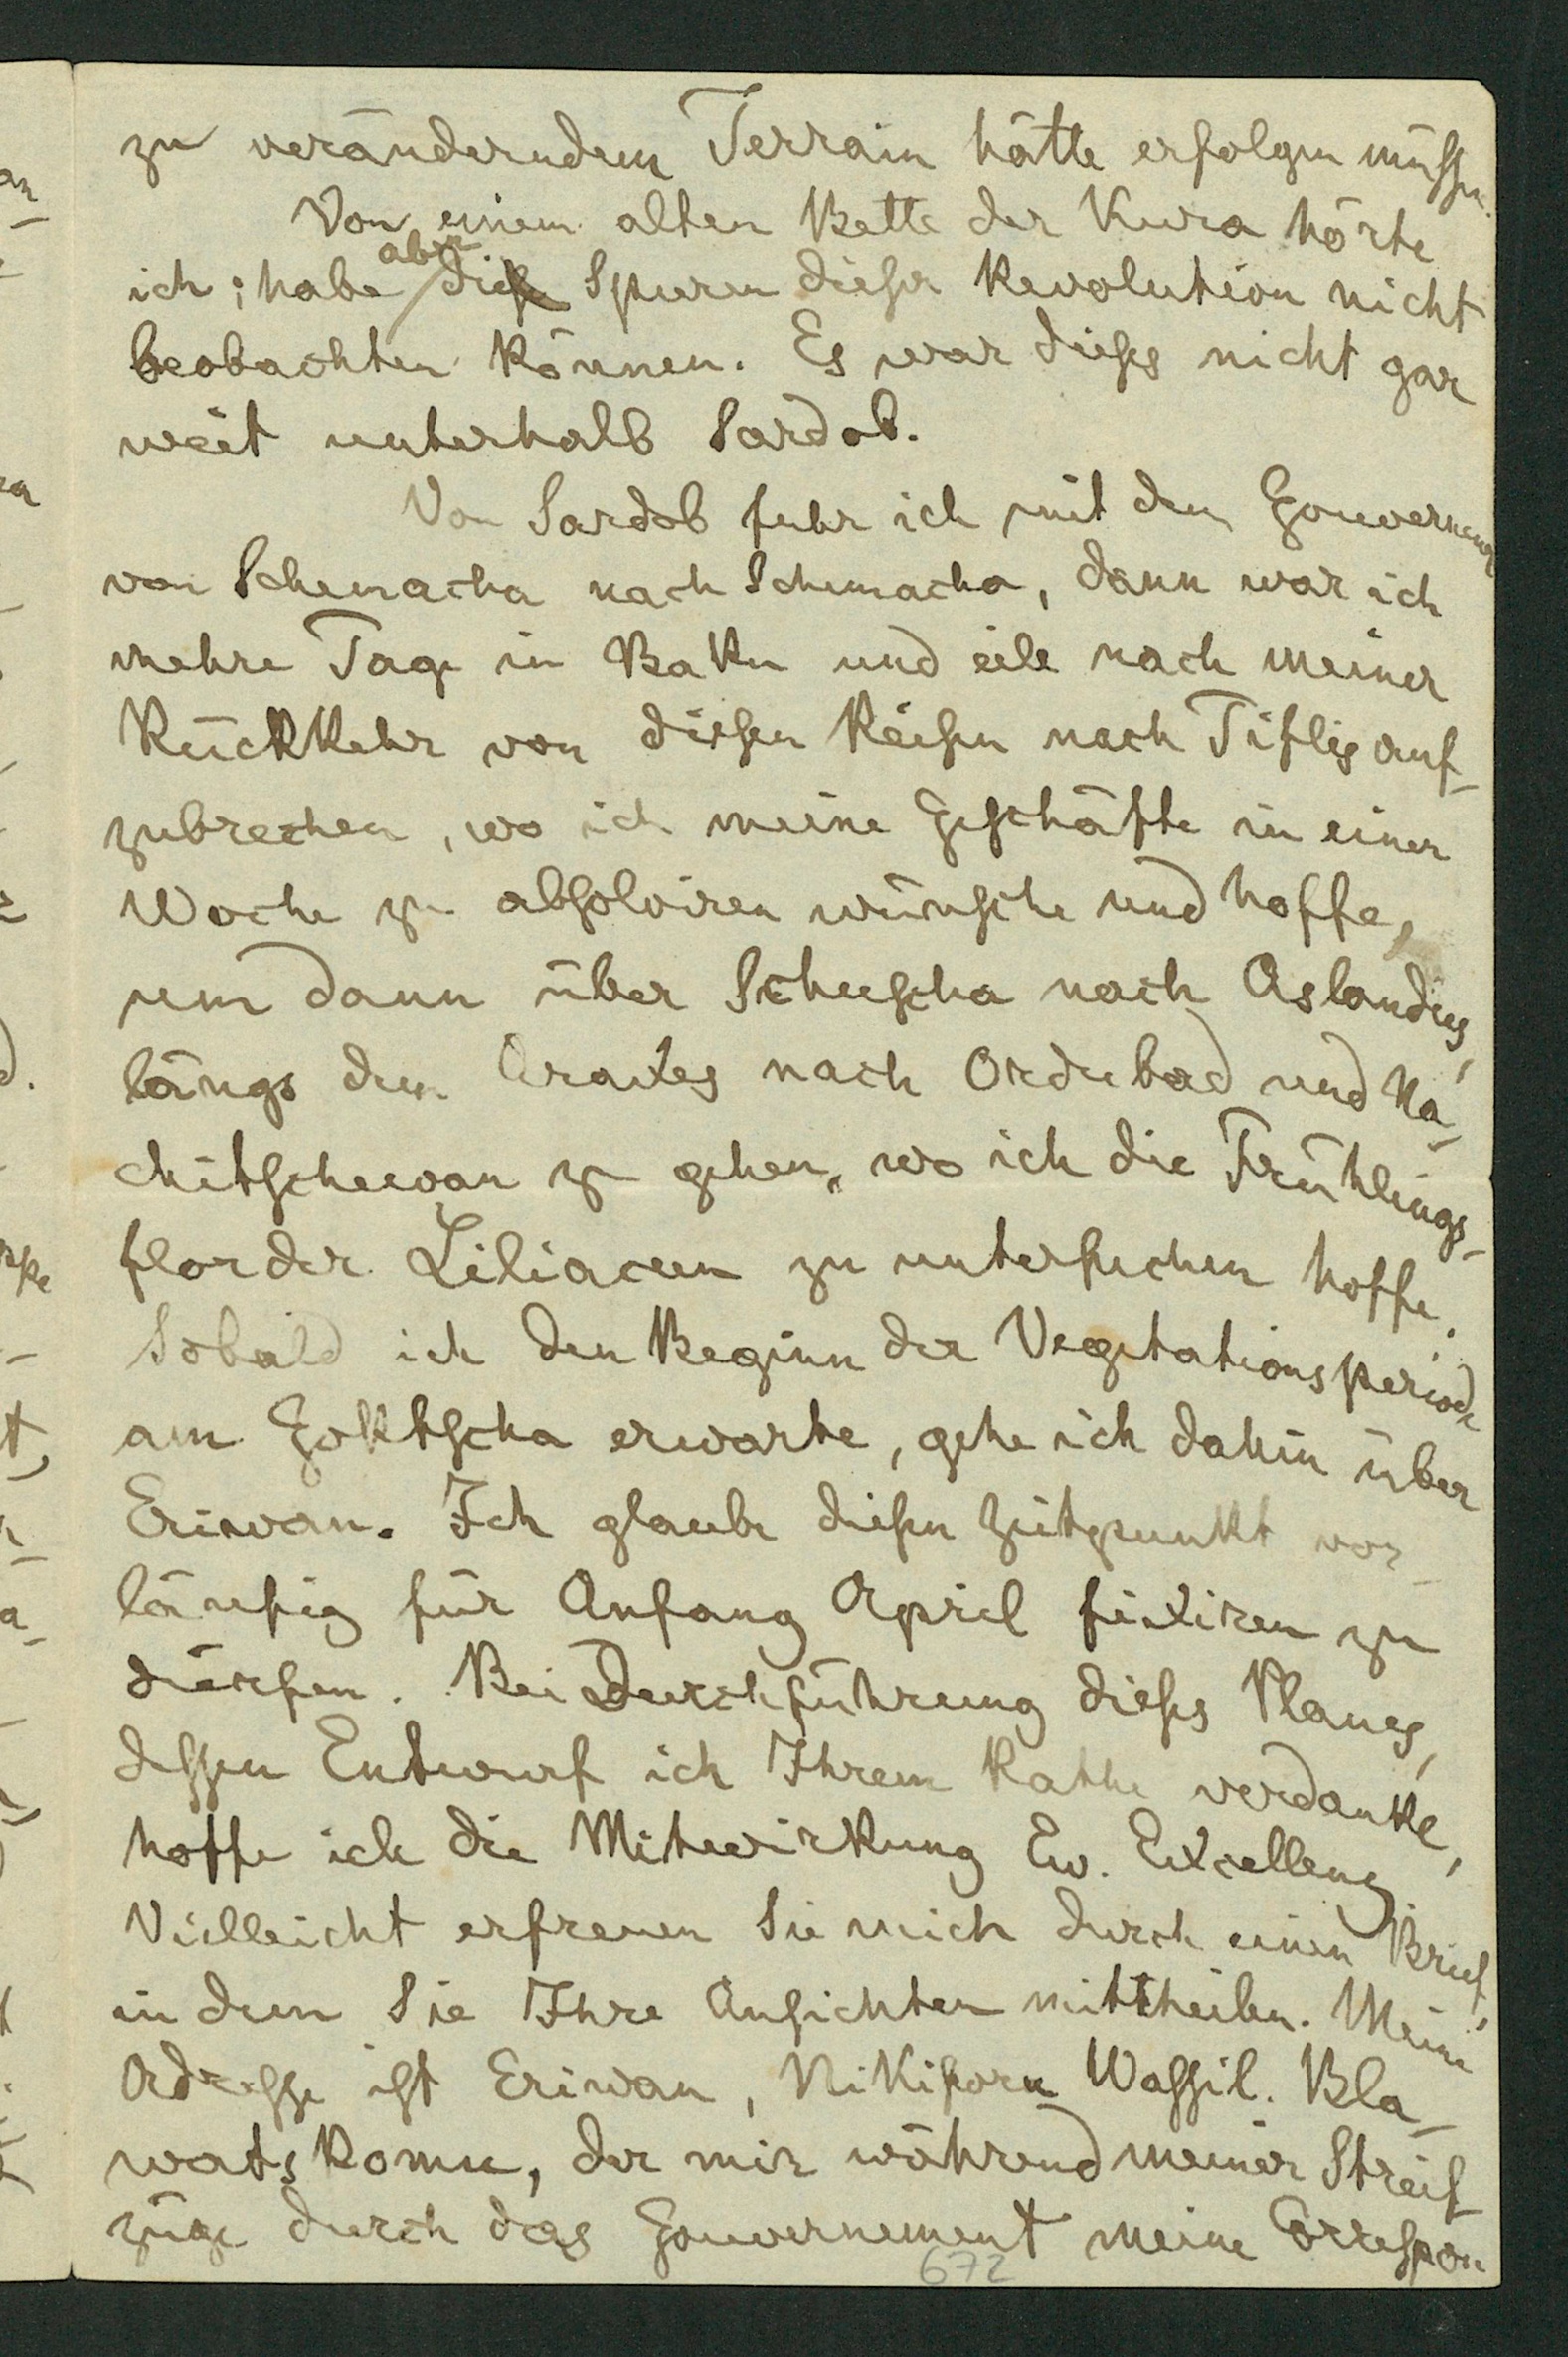 zu veränderndem Terrain hätte erfolgen müssen.
Von einem alten Bette der Kura hörte
ich; habe aber die Spuren dieser Revolution nicht
beobachten können. Es war dieses nicht gar
weit unterhalb Sardob.
Von Sardob fuhr ich mit dem Gouverneur
von Schemacha nach Schemacha, dann war ich
mehre Tage in Baku und eile nach meiner
Rückkehr von diesen Reisen nach Tiflis auf-
zubrechen, wo ich meine Geschäfte in einer
Woche zu absolviren wünsche und hoffe,
um dann über Schuscha nach Aslandus,
längs dem Araxes nach Ordubad und Na-
chitschewan zu gehen, wo ich die Frühlings-
flor der Liliaceen zu untersuchen hoffe.
Sobald ich den Beginn der Vegetationsperiode
am Goktscha erwarte, gehe ich dahin über
Eriwan. Ich glaube diesen Zeitpunkt vor-
läufig für Anfang April fixiren zu
dürfen. Bei Durchführung dieses Planes,
dessen Entwurf ich Ihrem Rathe verdanke,
hoffe ich die Mitwirkung Ew. Excellenz.
Vielleicht erfreuen Sie mich durch einen Brief,
in dem Sie Ihre Ansichten mittheilen. Meine
Adresse ist Eriwan, Nikiforu Wassil. Bla-
watskomu, der mir während meiner Streif-
züge durch das Gouvernement meine Correspon
672